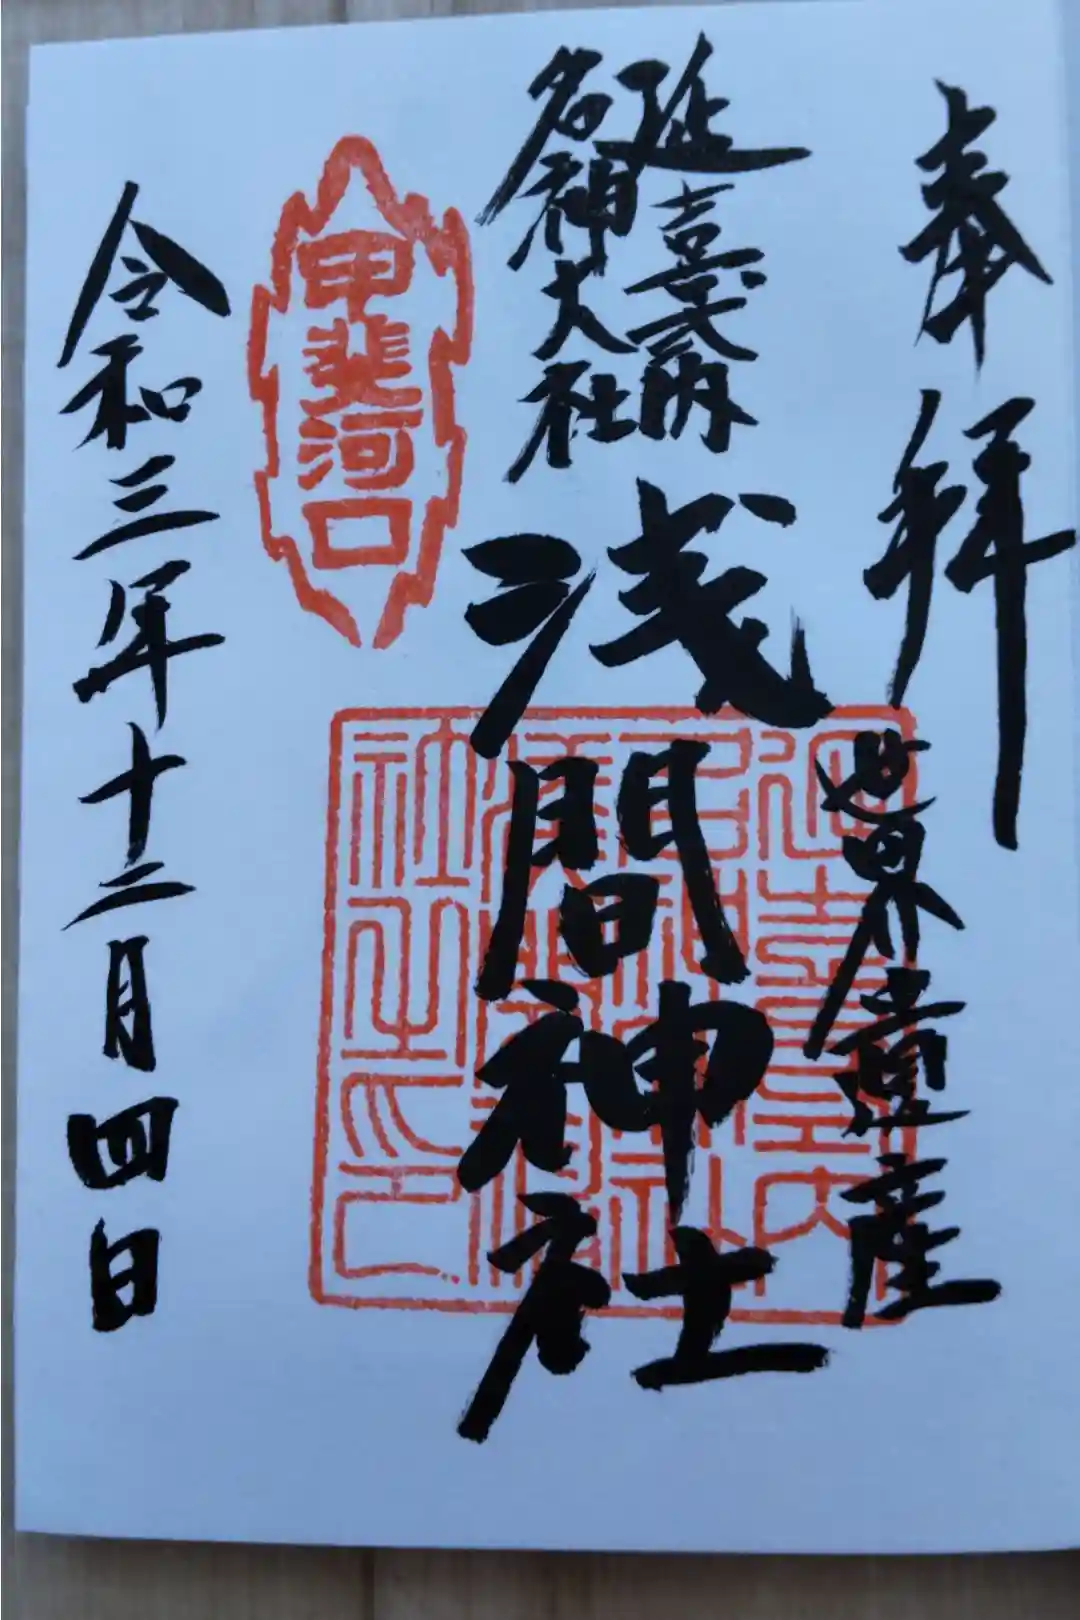 奉拝
世界遺産
延喜式内
名神大社
浅間神社
甲斐河口
令和三年十二月四日